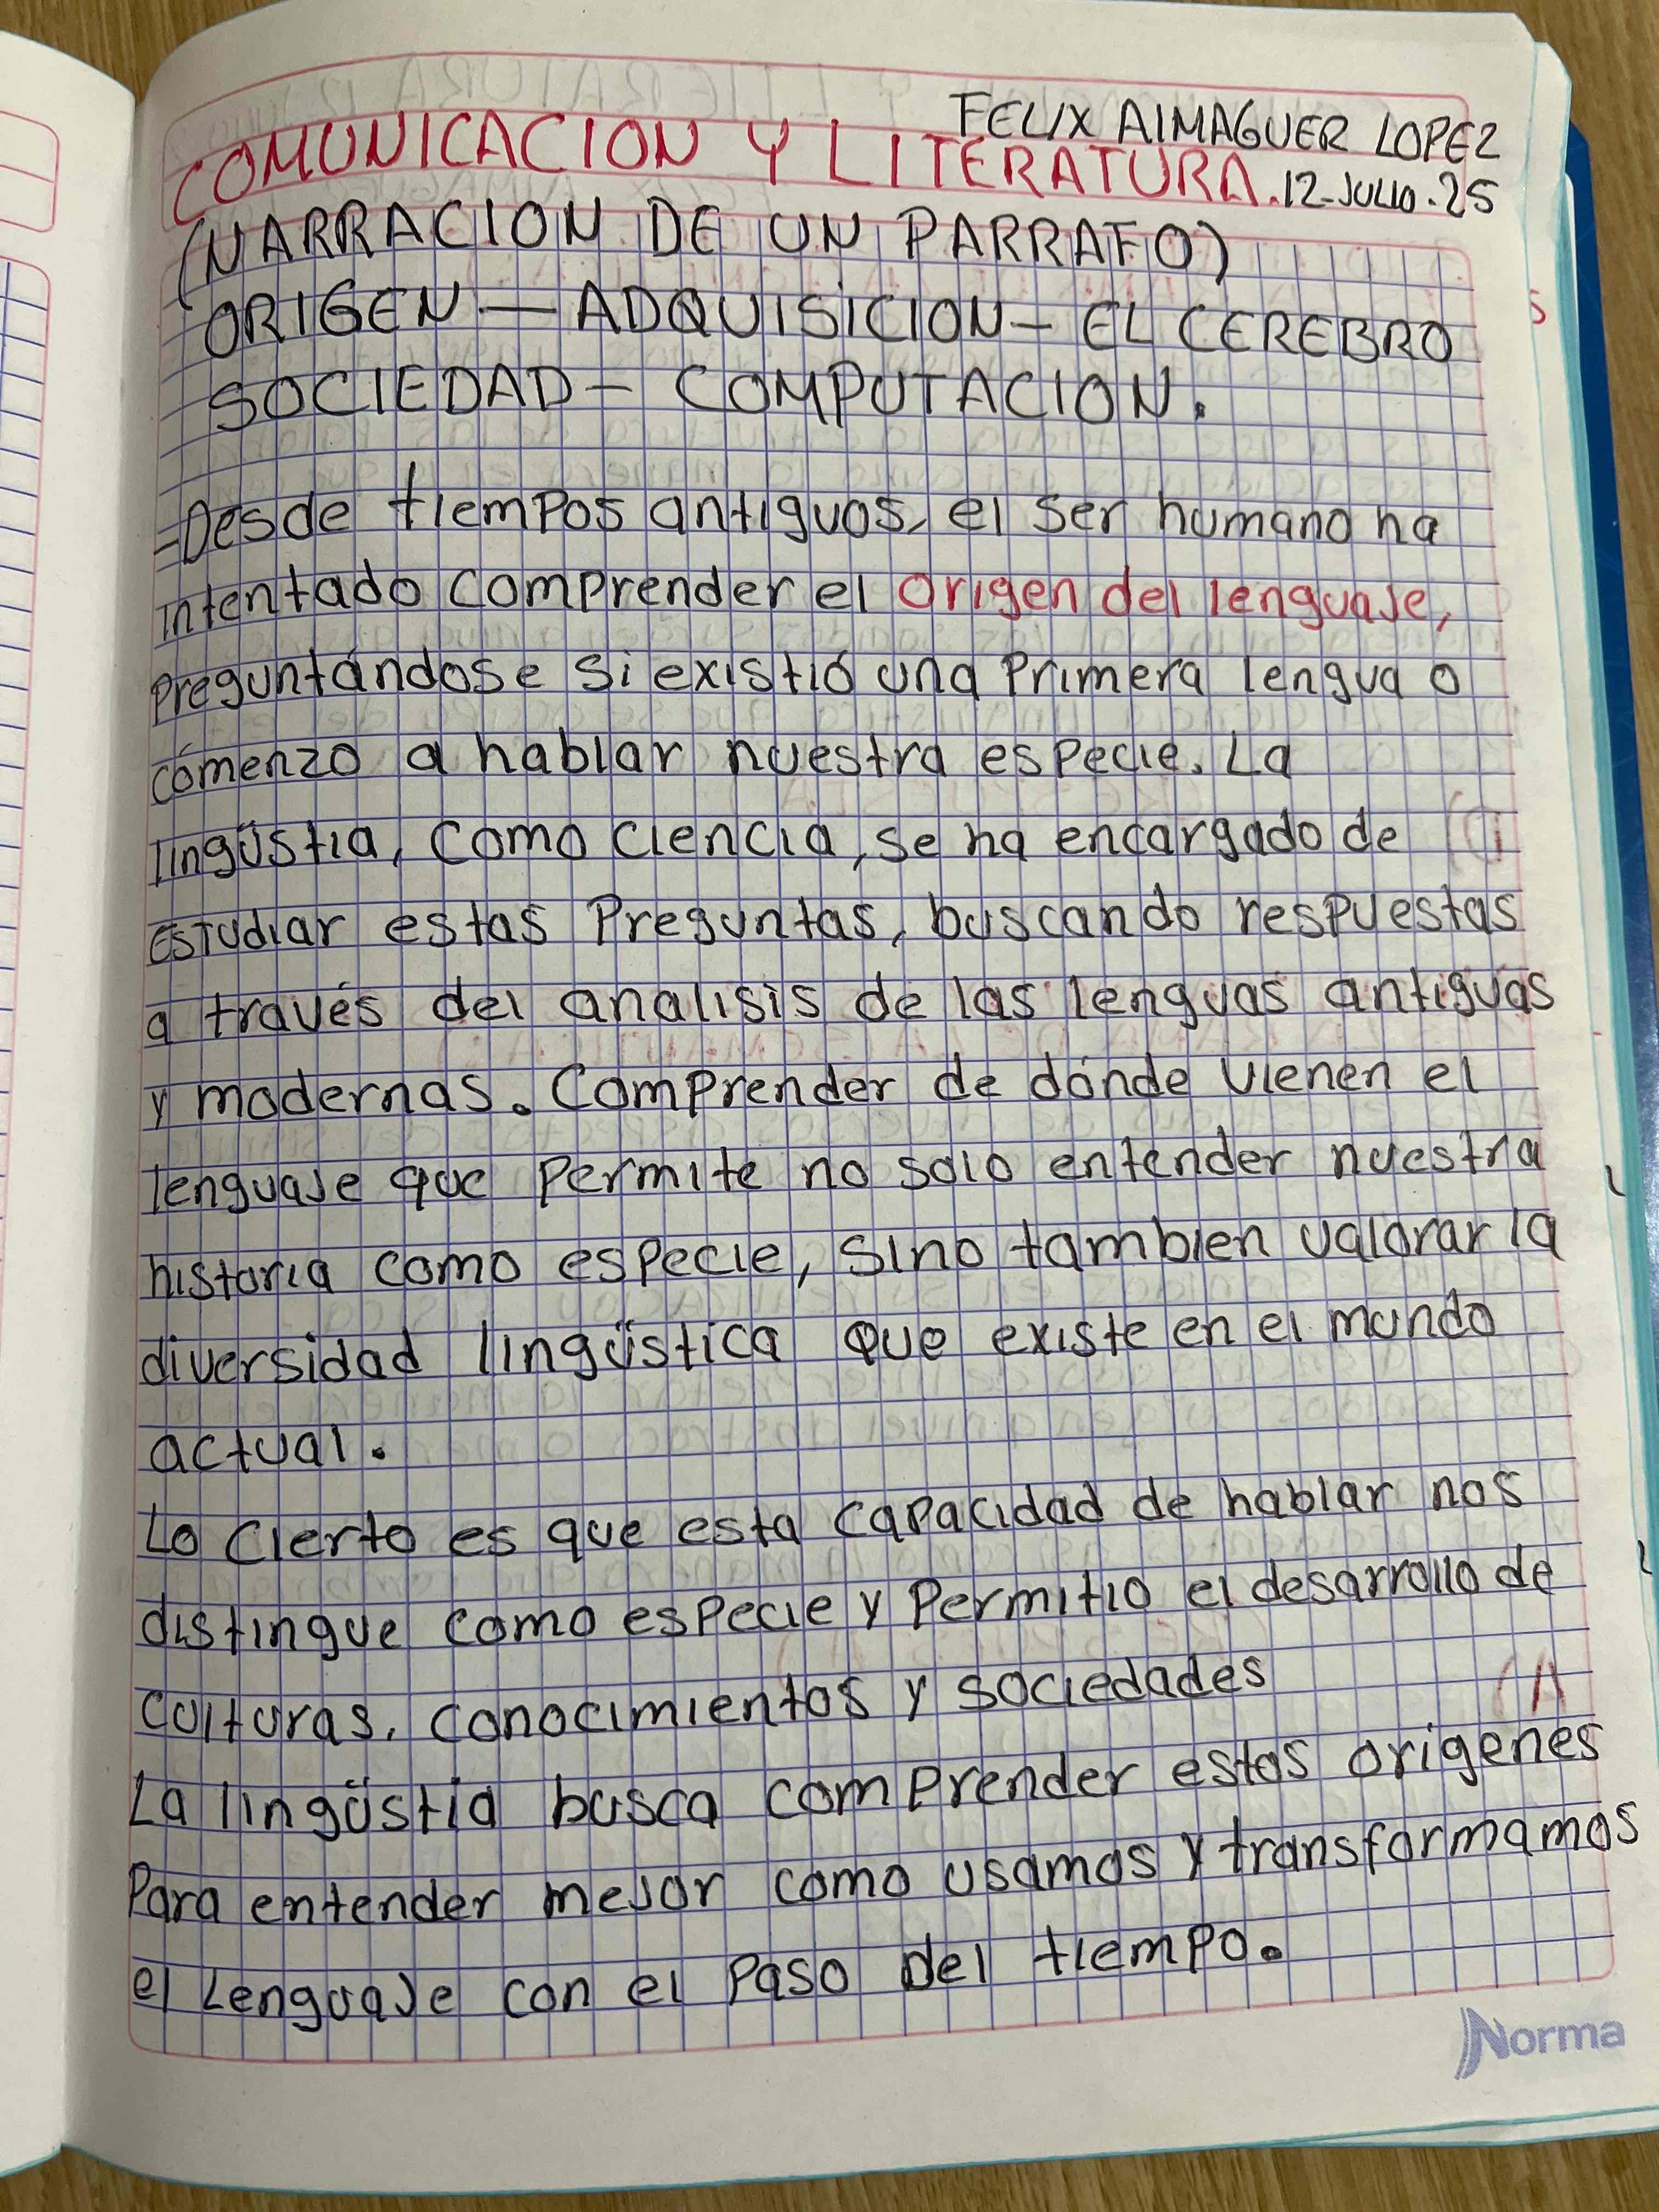 FELIX AlMAGUER LOPEZ
COMUNICACION Y LITERATURA. 12-JULIO.25
(NARRACION DE UN PARRAFO)
ORIGEN — ADQUISICION — EL CEREBRO
SOCIEDAD — COMPUTACION.
=Desde tiempos antiguos, el ser humano ha
intentado comprender el origen del lenguaje,
preguntándose si existió una primera lengua o
cómenzo a hablar nuestra especie. La
lingüstia, como ciencia, se ha encargado de
estudiar estas preguntas, buscando respuestas
a través del analisis de las lenguas antiguas
y modernas. Comprender de dónde vienen el
lenguaje que permite no solo entender nuestra
historia como especie, sino tambien valorar la
diversidad lingüstica que existe en el mundo
actual.
Lo cierto es que esta capacidad de hablar nos
distingue como especie y permitio el desarrollo de
culturas, conocimientos y sociedades
La lingüstia busca comprender estos origenes
para entender mejor como usamos y transformamos
el lenguaje con el paso del tiempo.
Norma